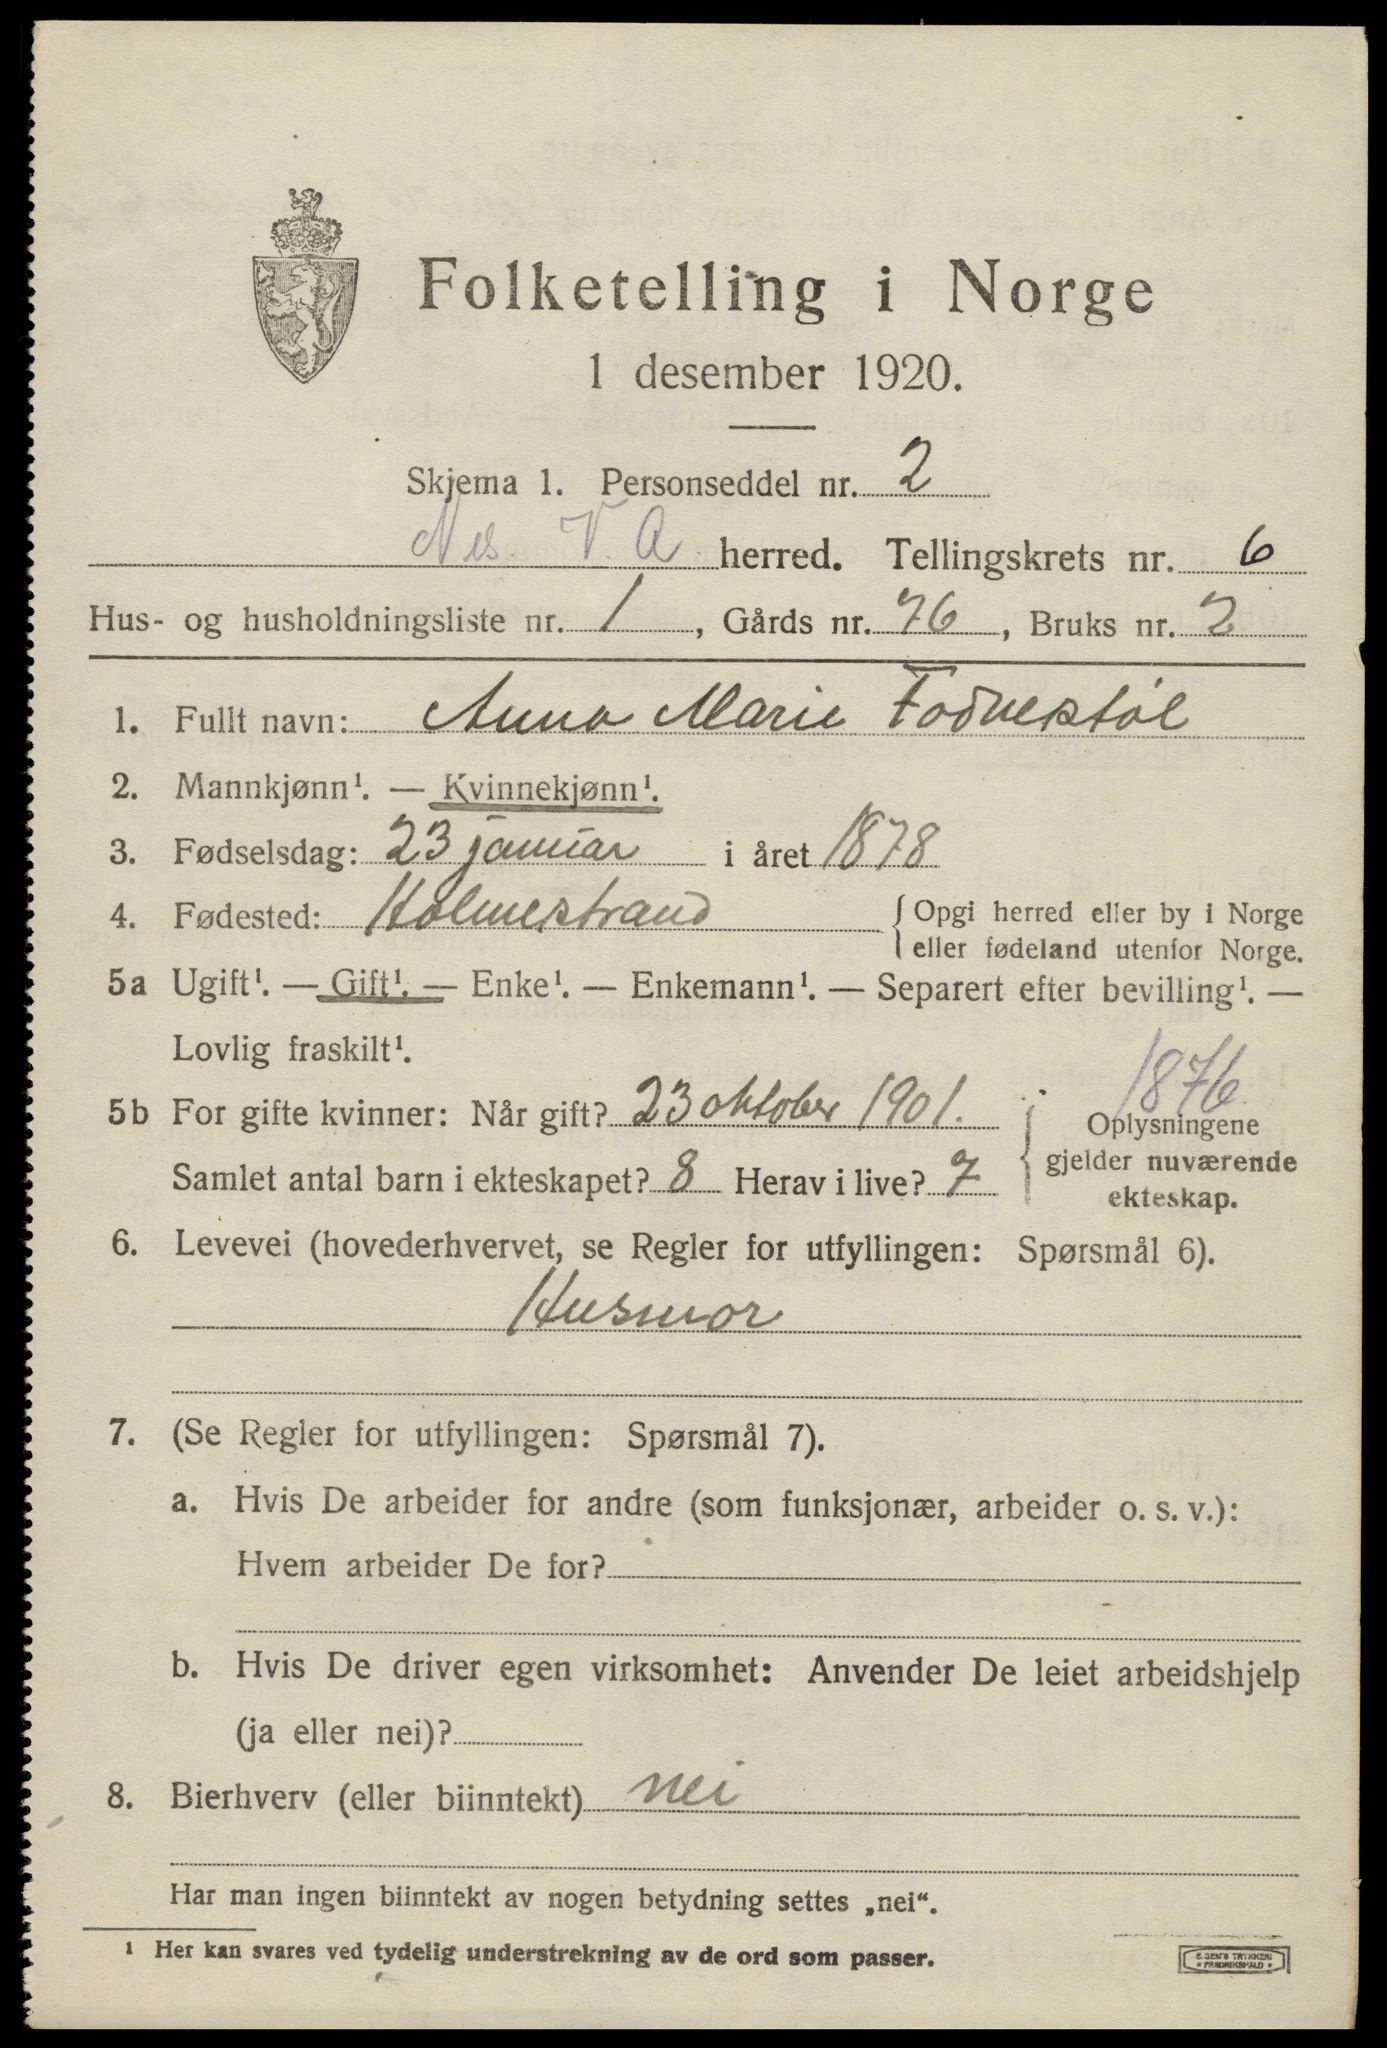 Folketelling i Norge
1 desember 1920.
Skjema 1. Personseddel nr. 2
Nes V. A herred. Tellingskrets nr. 6
Hus- og husholdningsliste nr. 1, Gårds nr. 76, Bruks nr. 2
1. Fullt navn: Anna Marie
2. Mannkjønn¹. — Kvinnekjønn¹.
3. Fødselsdag: 23 januar i året 1878
4. Fødested: Holmestrand { Opgi herred eller by i Norge
eller fødeland utenfor Norge.
5a Ugift¹. — Gift¹. — Enke¹. — Enkemann¹. — Separert efter bevilling¹. —
Lovlig fraskilt¹.
1876
5b For gifte kvinner: Når gift? 23 oktober 1901. { Oplysningene
gjelder nuværende
Samlet antal barn i ekteskapet? 8 Herav i live? 7
ekteskap.
6. Levevei (hovederhvervet, se Regler for utfyllingen: Spørsmål 6).
Husmor
7. (Se Regler for utfyllingen: Spørsmål 7).
a. Hvis De arbeider for andre (som funksjonær, arbeider o. s. v.):
Hvem arbeider De for?
b. Hvis De driver egen virksomhet: Anvender De leiet arbeidshjelp
(ja eller nei)?
8. Bierhverv (eller biinntekt) nei
Har man ingen biinntekt av nogen betydning settes „nei“.
¹ Her kan svares ved tydelig understrekning av de ord som passer.
E. SEM'S TRYKKERI
• FREDRIKSHALD •